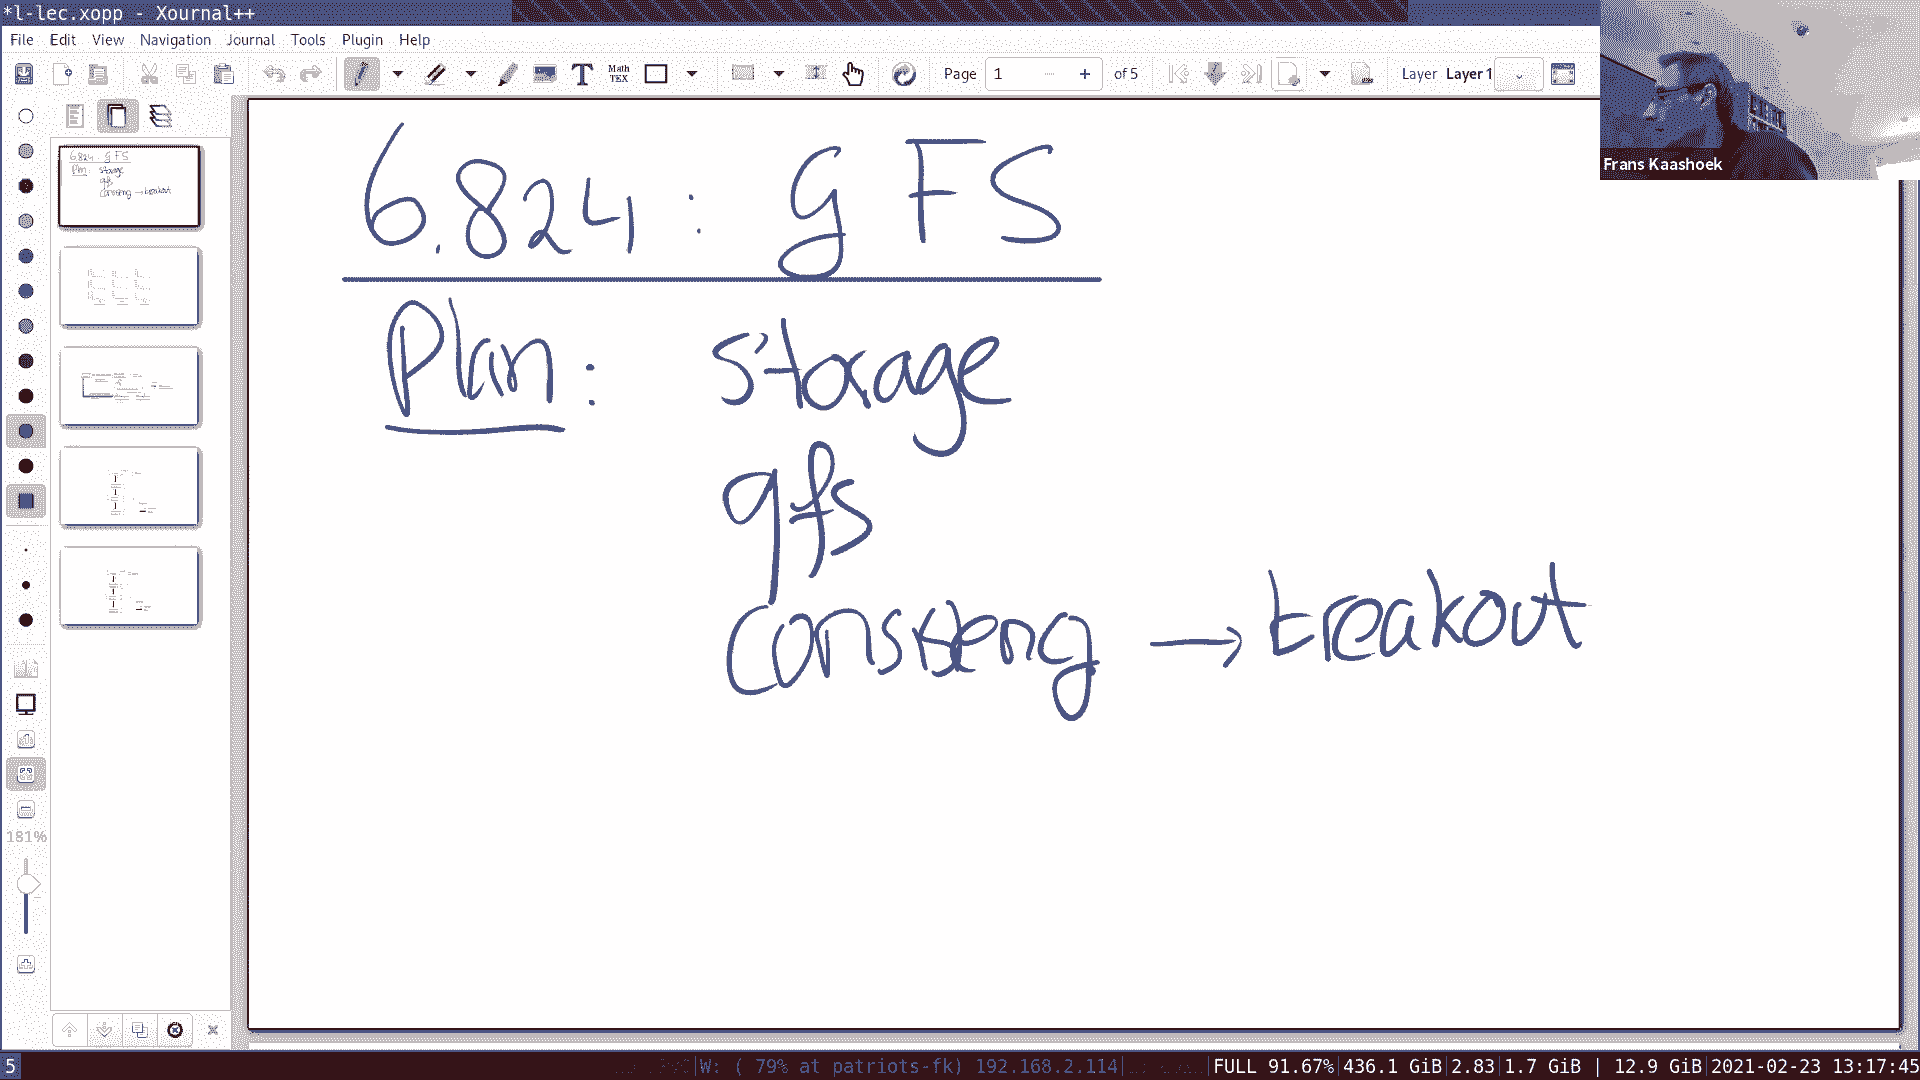 *l-lec.xopp - Xournal++
File Edit View Navigation Journal Tools Plugin Help
T Math TEX Page 1 of 5 Layer Layer 1
Frans Kaashoek
6.824 : GFS
Plan : storage
gfs
consistency → breakout
181%
5 W: ( 79% at patriots-fk) 192.168.2.114 FULL 91.67% 436.1 GiB 2.83 1.7 GiB | 12.9 GiB 2021-02-23 13:17:45